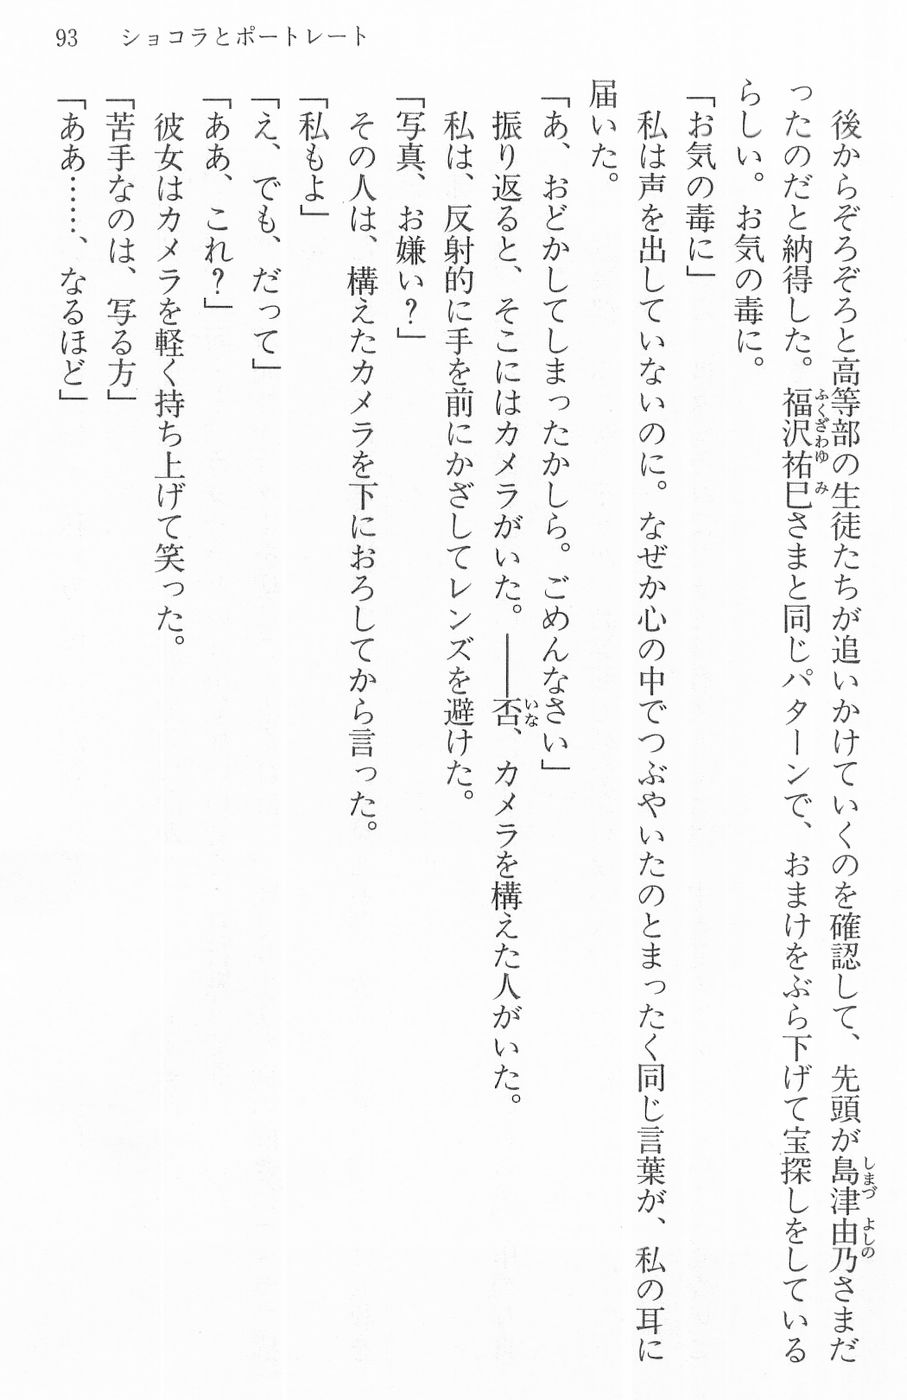 93 ショコラとポートレート
後からぞろぞろと高等部の生徒たちが追いかけていくのを確認して、先頭が島津由乃さまだ
ったのだと納得した。福沢祐巳さまと同じパターンで、おまけをぶら下げて宝探しをしている
らしい。お気の毒に。
「お気の毒に」
私は声を出していないのに。なぜか心の中でつぶやいたのとまったく同じ言葉が、私の耳に
届いた。
「あ、おどかしてしまったかしら。ごめんなさい」
振り返ると、そこにはカメラがいた。――否、カメラを構えた人がいた。
私は、反射的に手を前にかざしてレンズを避けた。
「写真、お嫌い?」
その人は、構えたカメラを下におろしてから言った。
「私もよ」
「え、でも、だって」
「ああ、これ?」
彼女はカメラを軽く持ち上げて笑った。
「苦手なのは、写る方」
「ああ……、なるほど」
しまづ よしの
ふくざわゆみ
いな